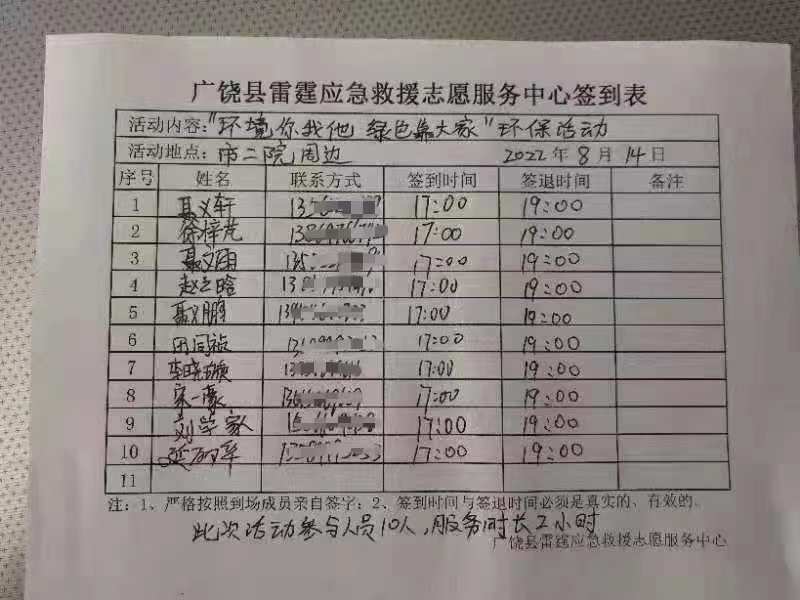 广饶县雷霆应急救援志愿服务中心签到表
活动内容："环境你我他 绿色靠大家"环保活动
活动地点：市二院周边 2022年8月14日
序号 姓名 联系方式 签到时间 签退时间 备注
1 聂义轩 17:00 19:00
2 徐梓虎 17:00 19:00
3 聂文雨 17:00 19:00
4 赵云晗 17:00 19:00
5 聂义鹏 17:00 19:00
6 田同祯 17:00 19:00
7 17:00 19:00
8 宋一豪 17:00 19:00
9 刘学家 17:00 19:00
10 17:00 19:00
11
注：1、严格按照到场成员亲自签字；2、签到时间与签退时间必须是真实的、有效的。
此次活动参与人员10人，服务时长2小时
广饶县雷霆应急救援志愿服务中心